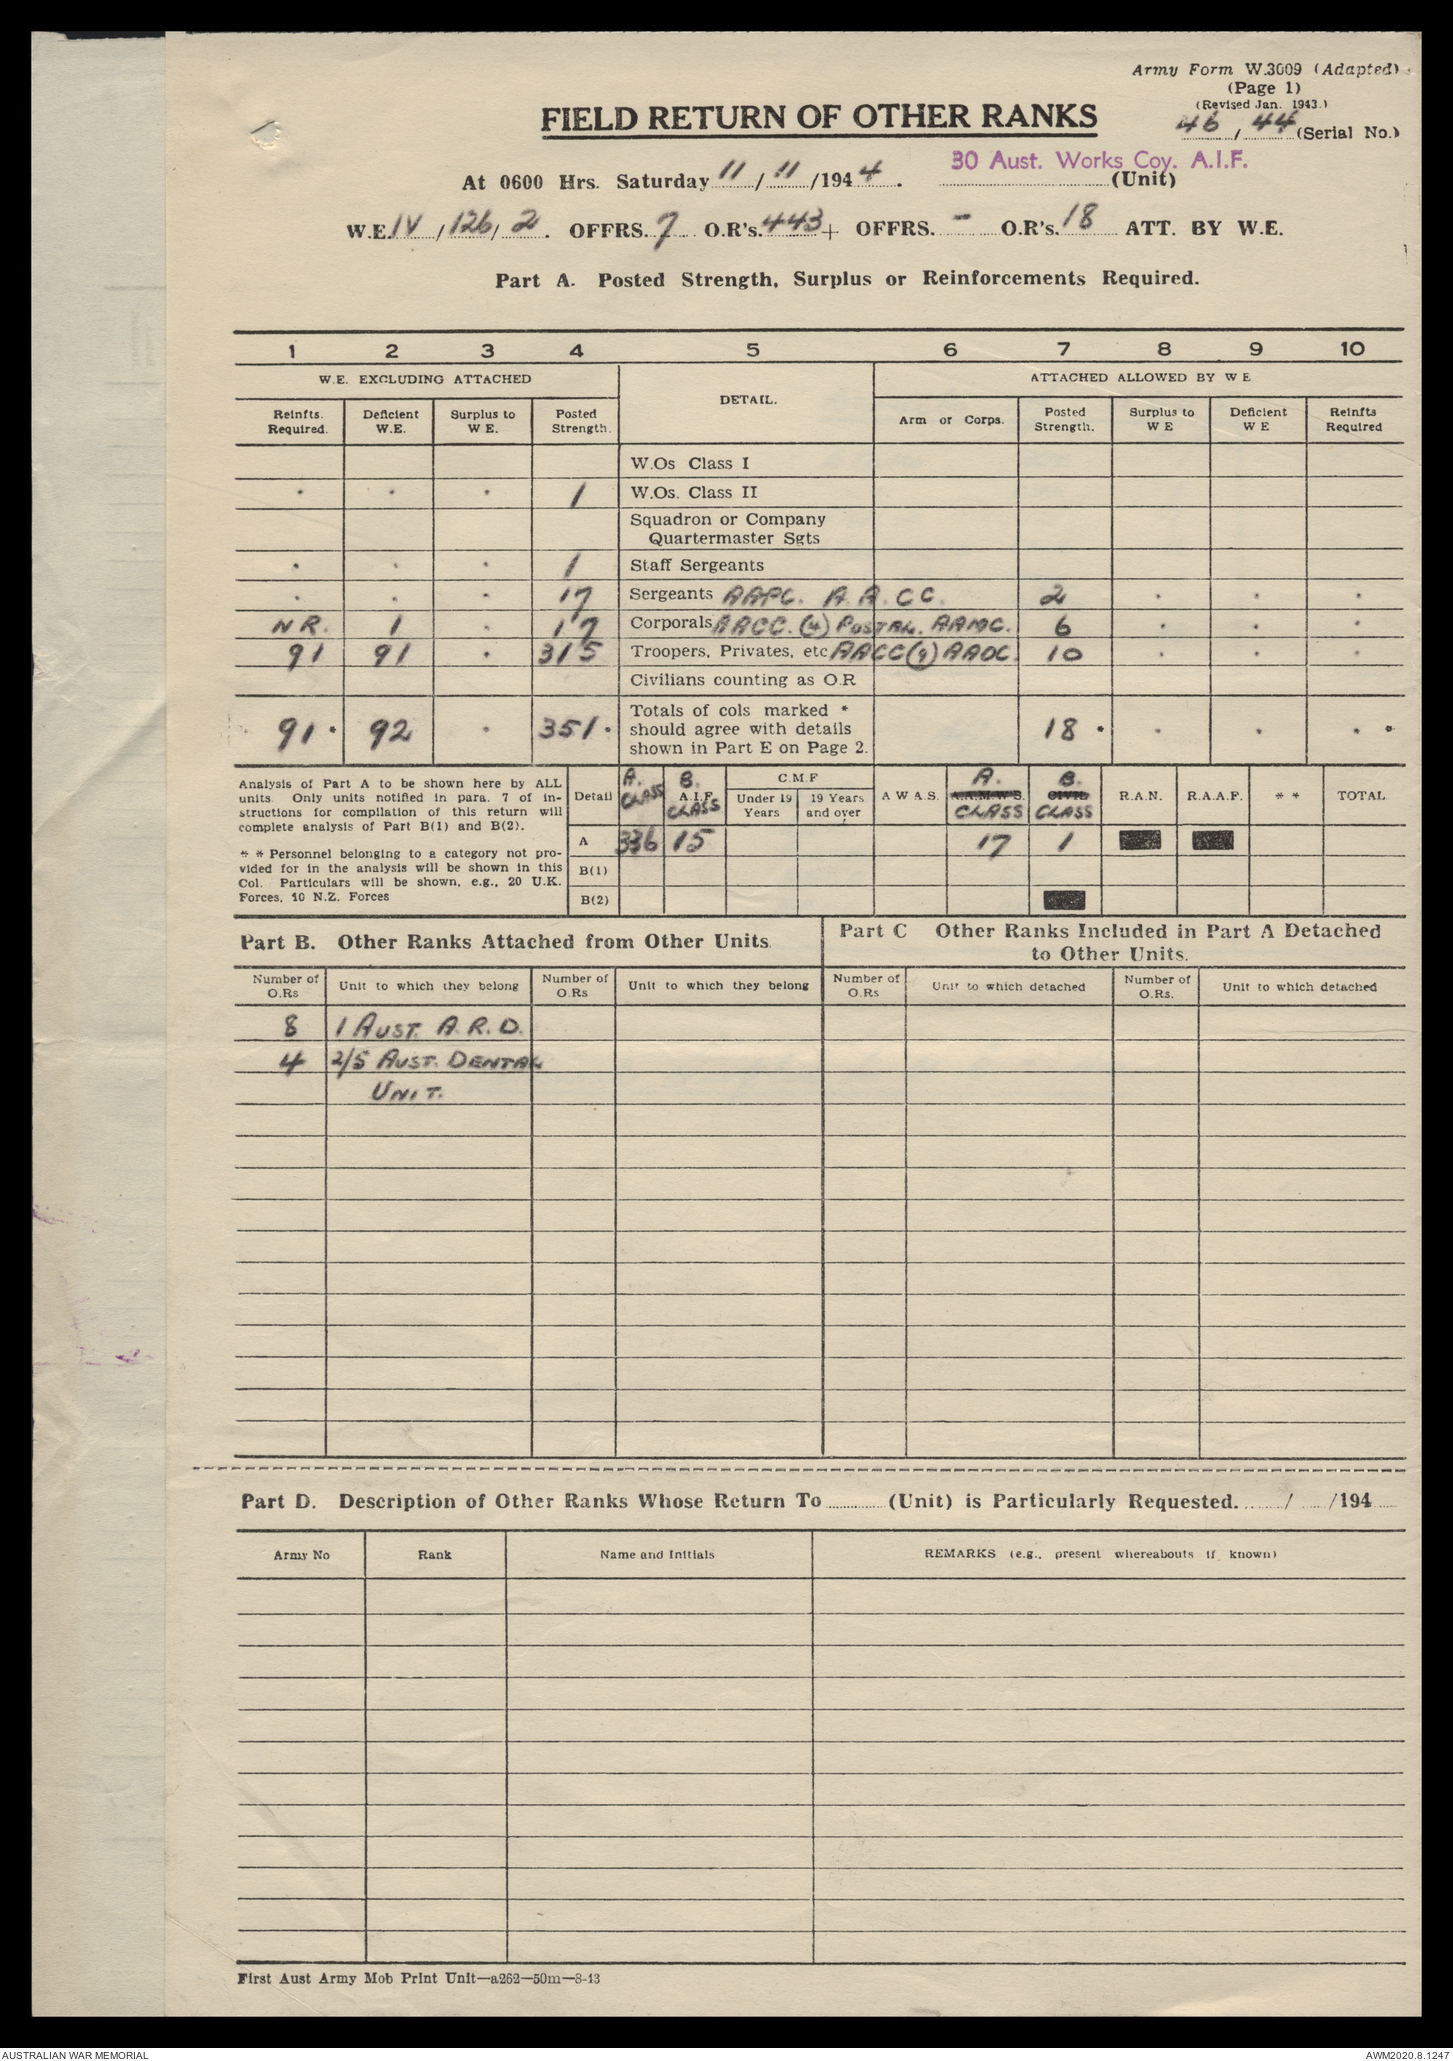 Army Form W.3009 (Adapted)
(Page 1)
(Revised Jan. 1943.)
FIELD RETURN OF OTHER RANKS
46 / 44 (Serial No.)
30 Aust. Works Coy. A.I.F.
At 0600 Hrs. Saturday 11 / 11 /1944. (Unit)
W.E. IV / 126 / 2. OFFRS. 7 O.R's. 443 + OFFRS. - O.R's. 18 ATT. BY W.E.
Part A. Posted Strength, Surplus or Reinforcements Required.
1 2 3 4 5 6 7 8 9 10
W.E. EXCLUDING ATTACHED DETAIL. ATTACHED ALLOWED BY W E
Reinfts. Required. Deficient W.E. Surplus to W E. Posted Strength. Arm or Corps. Posted Strength. Surplus to W E Deficient W E Reinfts Required
W.Os Class I
. . . 1 W.Os. Class II
Squadron or Company
Quartermaster Sgts
. . . 1 Staff Sergeants
. . . 17 Sergeants AAPC. A.A.CC. 2 . . .
N R. 1 . 17 Corporals AACC. (4) POSTAL. AAMC. 6 . . .
91 91 . 315 Troopers, Privates, etc AACC (9) AAOC. 10 . . .
Civilians counting as O.R
Totals of cols marked *
91 * 92 . 351 * should agree with details 18 * . . . *
shown in Part E on Page 2.
Analysis of Part A to be shown here by ALL
units. Only units notified in para. 7 of in-
structions for compilation of this return will
complete analysis of Part B(1) and B(2).
* * Personnel belonging to a category not pro-
vided for in the analysis will be shown in this
Col. Particulars will be shown, e.g., 20 U.K.
Forces, 10 N.Z. Forces
Detail A. CLASS B. A.I.F. CLASS C.M.F Under 19 Years 19 Years and over A W A S. A. A.A.M.W.S. CLASS B. CIVIL CLASS R.A.N. R.A.A.F. * * TOTAL
A 336 15 17 1
B(1)
B(2)
Part B. Other Ranks Attached from Other Units.
Part C Other Ranks Included in Part A Detached
to Other Units.
Number of O.Rs Unit to which they belong Number of O.Rs Unit to which they belong Number of O.Rs Unit to which detached Number of O.Rs. Unit to which detached
8 1 AUST. A.R.D.
4 2/5 AUST. DENTAL
UNIT.
Part D. Description of Other Ranks Whose Return To (Unit) is Particularly Requested. / /194
Army No Rank Name and Initials REMARKS (e.g., present whereabouts if known)
First Aust Army Mob Print Unit—a262—50m—8-43
AUSTRALIAN WAR MEMORIAL AWM2020.8.1247